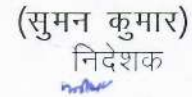 (सुमन कुमार)
निदेशक